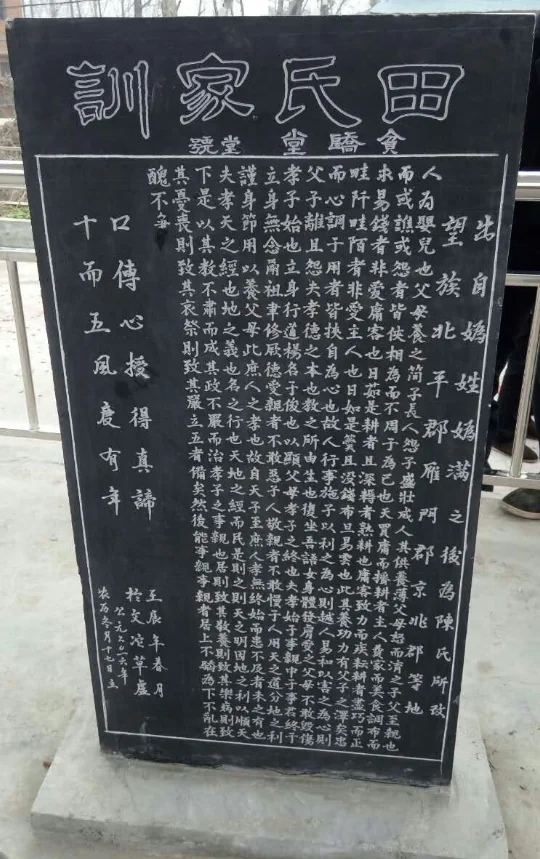 田氏家訓
貧驕堂 堂號
出自媯姓媯满之後為陳氏所改
望族北平郡雁門郡京兆郡等地
人为嬰兒也父母養之简子長人怨子盛壯成人其供養薄父母怒而诮之子父至親也
而或譙或怨者皆俠相為而不周于為己也夫買庸而播耕者主人費家而美食調布而
求易錢者非愛庸客也曰如是耕者且深耨者熟耕也庸客致力而疾耘耕者盡巧而正
畦阡畦陌者非爱主人也曰如是羹且没錢布旦易雲也此其養功力有父子之澤矣忠
而心調于用者皆挟自為心也故人行事施予以利之為心則越人易和以害之為心則
父子離且怨夫孝德之本也教之所由生也復坐吾語女身體發肩爱之父母不敢毁傷
孝子始也立身行道楊名于後也以顯父母孝子之終也夫孝始于事親中于事君終于
立身無念爾祖聿修厥德愛親者不敢惡于人敬親者不敢慢于人用天之道分地之利
謹身節用以養父母此庶人之孝也故自天子至庶人孝無終始而患不及者未之有也
夫孝天之經也地之義也名之行也天地之經而民是則之則天之明因地之利以順天
下是以其教不肅而成其政不嚴而治孝子之事親也居則致其敬養則致其樂病則致
其憂喪則致其哀祭則致其嚴立五者備矣然後能事親事親者居上不驕為下不亂在
醜不争
口傳心授得真諦
十而五風慶有年
壬辰年春月
於文沱草廬
公元二〇一六年
农历冬月十七日立